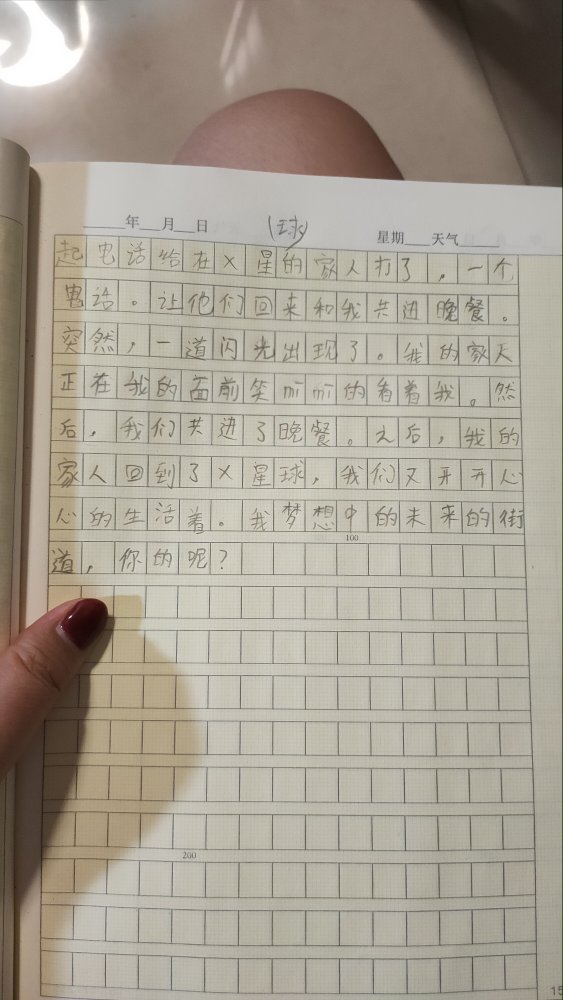 年 月 日 (球) 星期 天气
起电话给在X星的家人打了，一个
电话。让他们回来和我共进晚餐。
突然，一道闪光出现了。我的家人
正在我的面前笑嘛嘛的看着我。然
后，我们共进了晚餐。之后，我的
家人回到了X星球，我们又开开心
心的生活着。我梦想中的未来的街
100
道，你的呢？
200
15